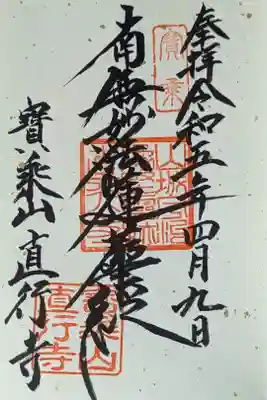 奉拝令和五年四月九日
寳乗
南無妙法蓮華経
寳乗山直行寺
直行寺